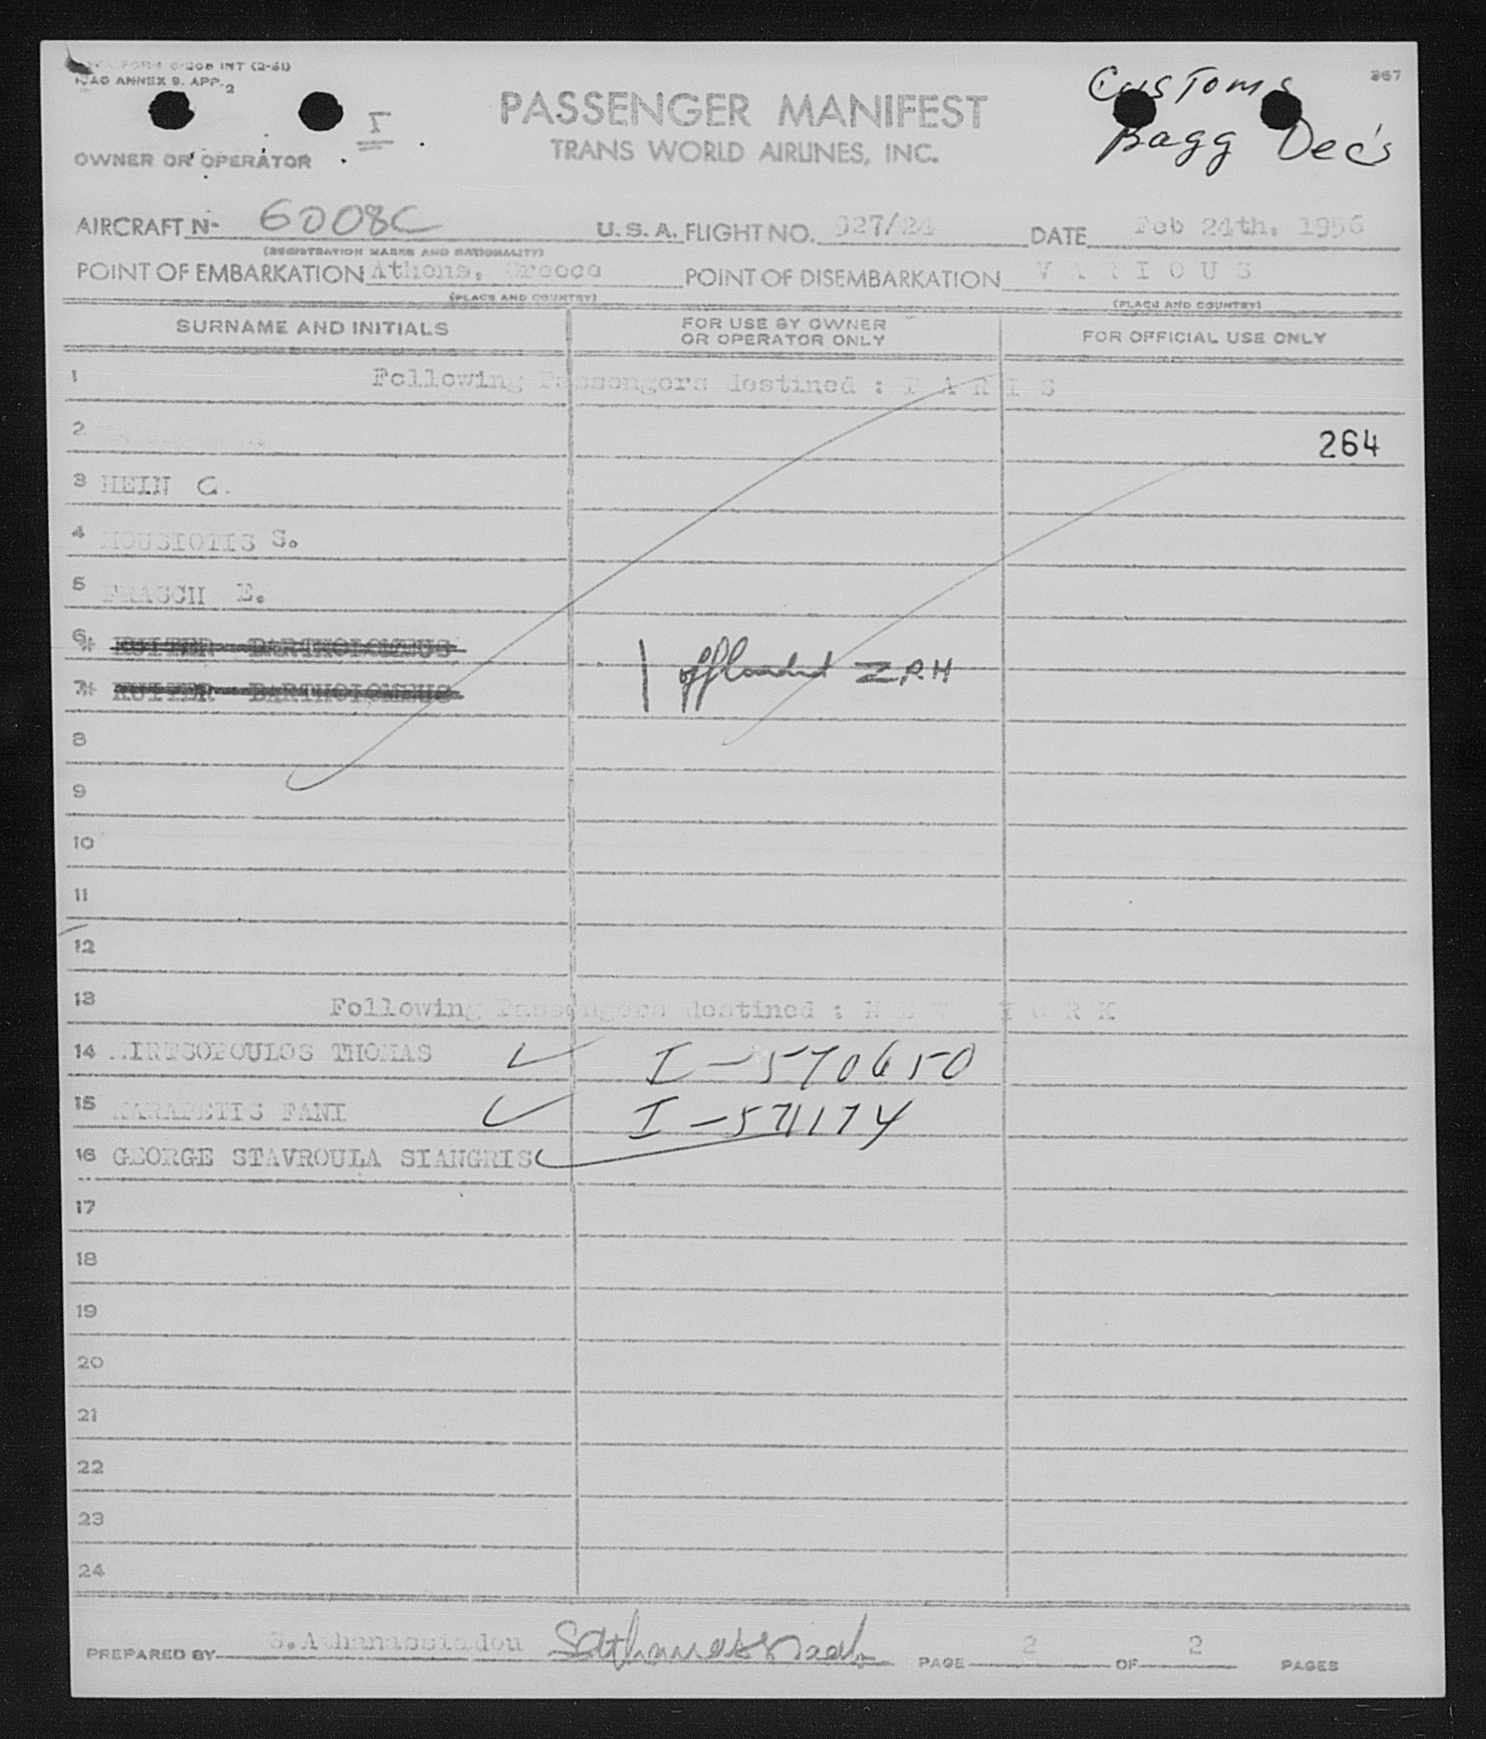 FORM C-208 INT (2-51)
ICAO ANNEX 9. APP. 2
367
Customs
Bagg Dec's
I
PASSENGER MANIFEST
TRANS WORLD AIRLINES, INC.
OWNER OR OPERATOR
AIRCRAFT N- 6008C U. S. A. FLIGHT NO. 927/24 DATE Feb 24th, 1956
(REGISTRATION MARKS AND NATIONALITY)
POINT OF EMBARKATION Athens, Greece POINT OF DISEMBARKATION V A R I O U S
(PLACE AND COUNTRY) (PLACE AND COUNTRY)
SURNAME AND INITIALS FOR USE BY OWNER OR OPERATOR ONLY FOR OFFICIAL USE ONLY
1 Following Passengers destined : P A R I S
2 264
3 HEIN G.
4 MOUSIOTIS S.
5 FRASCH E.
6 * RUITER BARTHOLOMEUS
7 * RUITER BARTHOLOMEUS
offloaded Z.R.H
8
9
10
11
12
13 Following Passengers destined : N E W Y O R K
14 THOMAS I-570650
15 KARAPETIS FANI I-571174
16 GEORGE STAVROULA SIANGRIS
17
18
19
20
21
22
23
24
PREPARED BY S. Athanassiadou PAGE 2 OF 2 PAGES